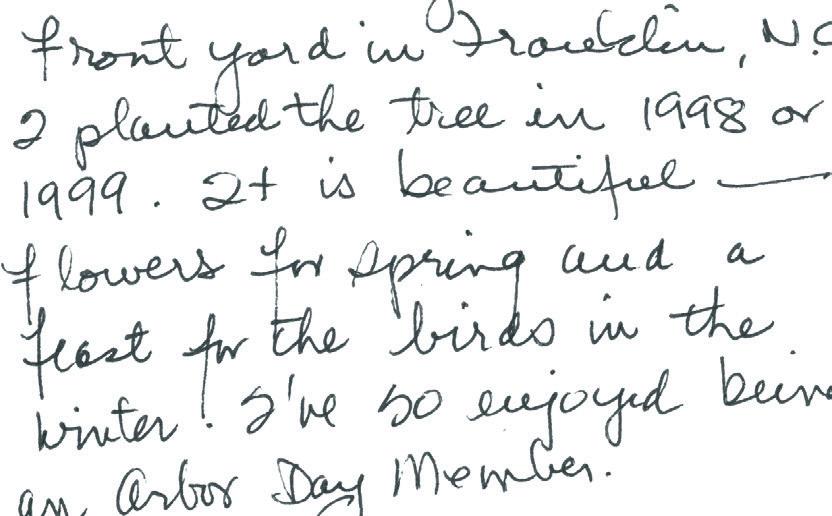 front yard in Franklin, N.C
I planted the tree in 1998 or
1999. It is beautiful —
flowers for spring and a
feast for the birds in the
winter! I've so enjoyed being
an Arbor Day Member.